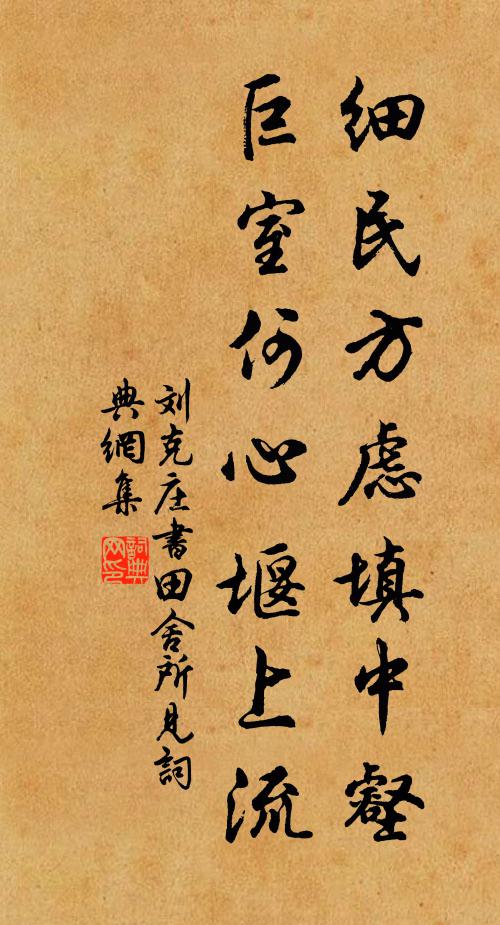 细民方虑填中壑
巨室何心堰上流
刘克庄书田舍所见词
典網集
詞典
网印